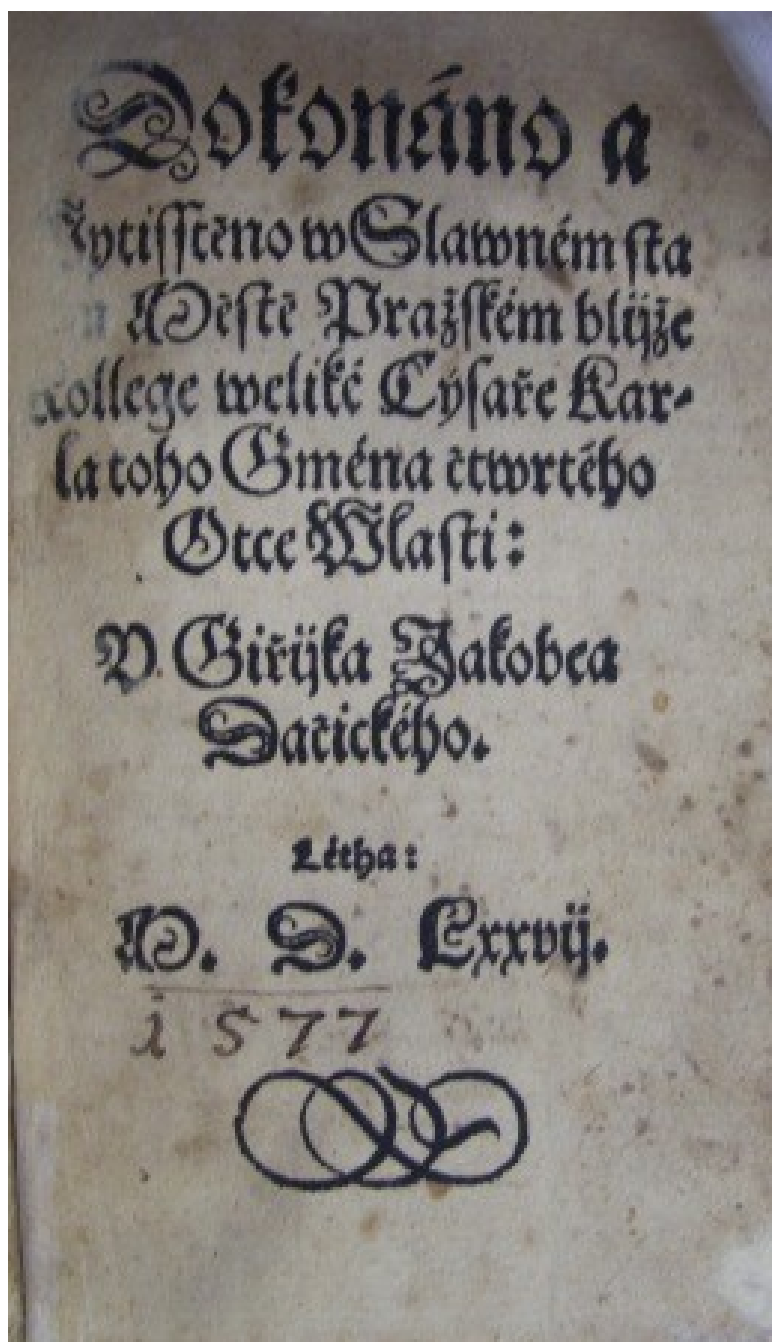 Dokonáno a
wytisſtěno w Slawném ſta
Měſtě Pražſkém blijže
Kollege weliké Cýſaře Kar-
la toho Gména čtwrtého
Otce Wlaſti:
V Giřijka Jakobea
Dačického.
Létha:
M. D. Lxxvij.
1577